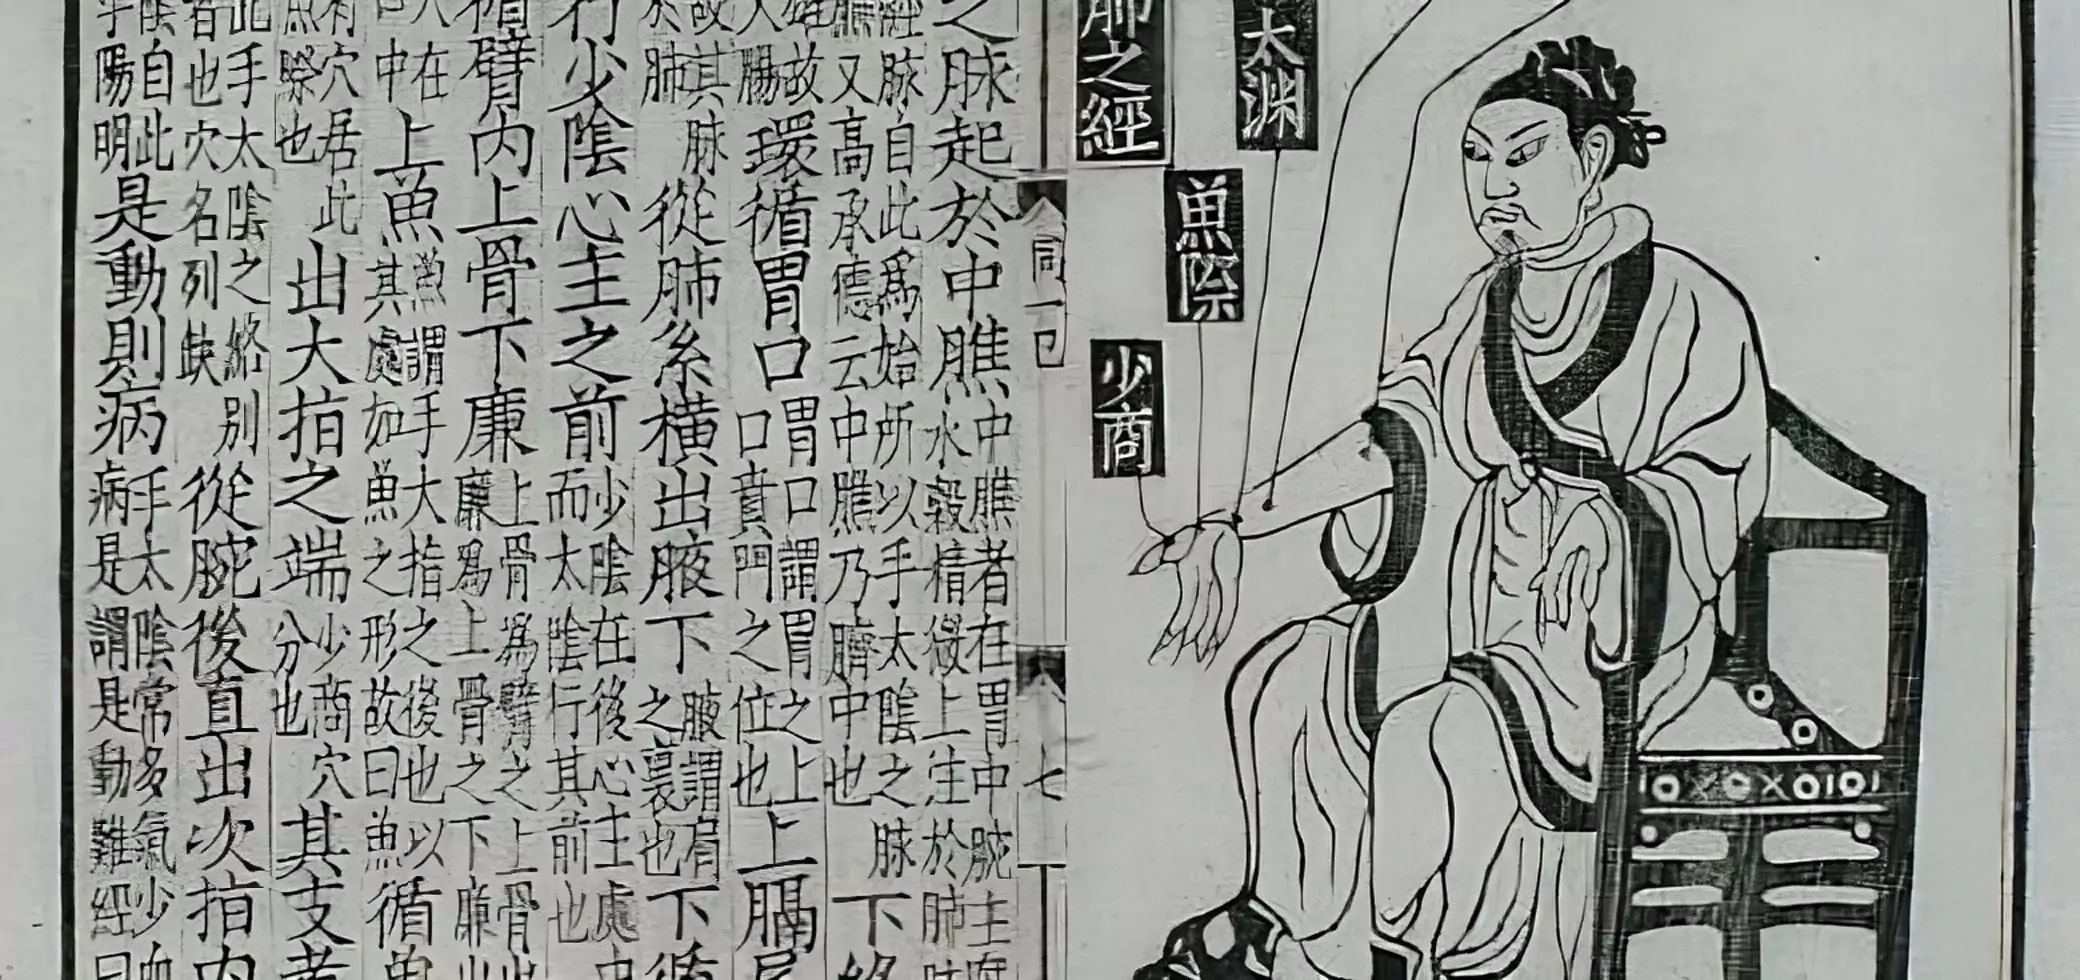 太渊
肺之經
魚際
少商
七
之脉起於中膲中膲者在胃中脘主水穀精微上注於肺
經脉自此爲始所以手太陰之脉又高承德云中膲乃臍中也下絡
故大腸環循胃口胃口謂胃之上口賁門之位也上膈
故其脉於肺從肺系橫出腋下腋謂肩之裏也下循
行少陰心主之前少陰在後心主處中而太陰行其前也
循臂内上骨下廉上骨爲臂之上骨廉爲上骨之下廉
人在中上魚魚謂手大指之後也以其處如魚之形故曰魚循魚
有穴居此魚際也出大指之端少商穴分也其支者
此手太陰之絡別者也穴名列缺從腕後直出次指内
陰自此乎陽明是動則病手太陰常多氣少血病是謂是動難經曰